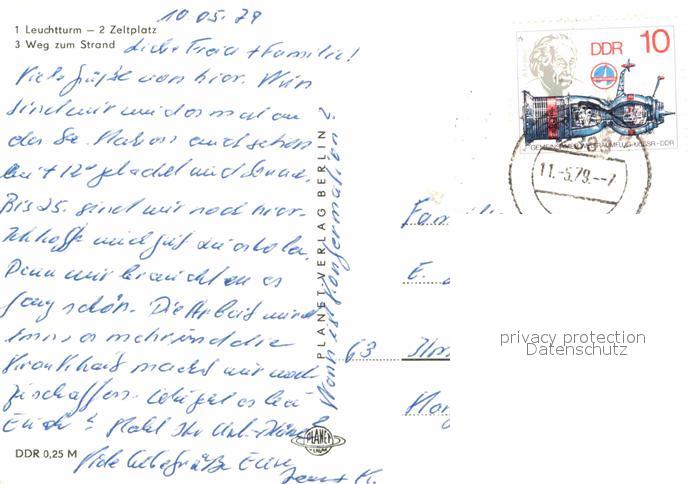 1 Leuchtturm — 2 Zeltplatz
3 Weg zum Strand
10 05. 79
liebe + Familie!
Viele Grüße von hier. Nun
sind wir wieder mal an
der See. Haben auch schon
bei + 12° gebadet und
Bis 25. sind wir noch hier.
Ich hoffe mich gut zu erholen,
Denn wir brauchten es
ganz schön. Die Arbeit wird
immer mehr und die
Krankheit macht mir noch
zu schaffen. Wie geht es bei
Euch? Habt Ihr
Viele liebe Grüße Eure
Wann ist Konfermation?
PLANET-VERLAG BERLIN
PLANET
DDR 0,25 M
DDR 10
GEMEINSAMER WELTRAUMFLUG UdSSR-DDR
11.-5.79.--7
Fam
E.
63 Ilm
privacy protection
Datenschutz